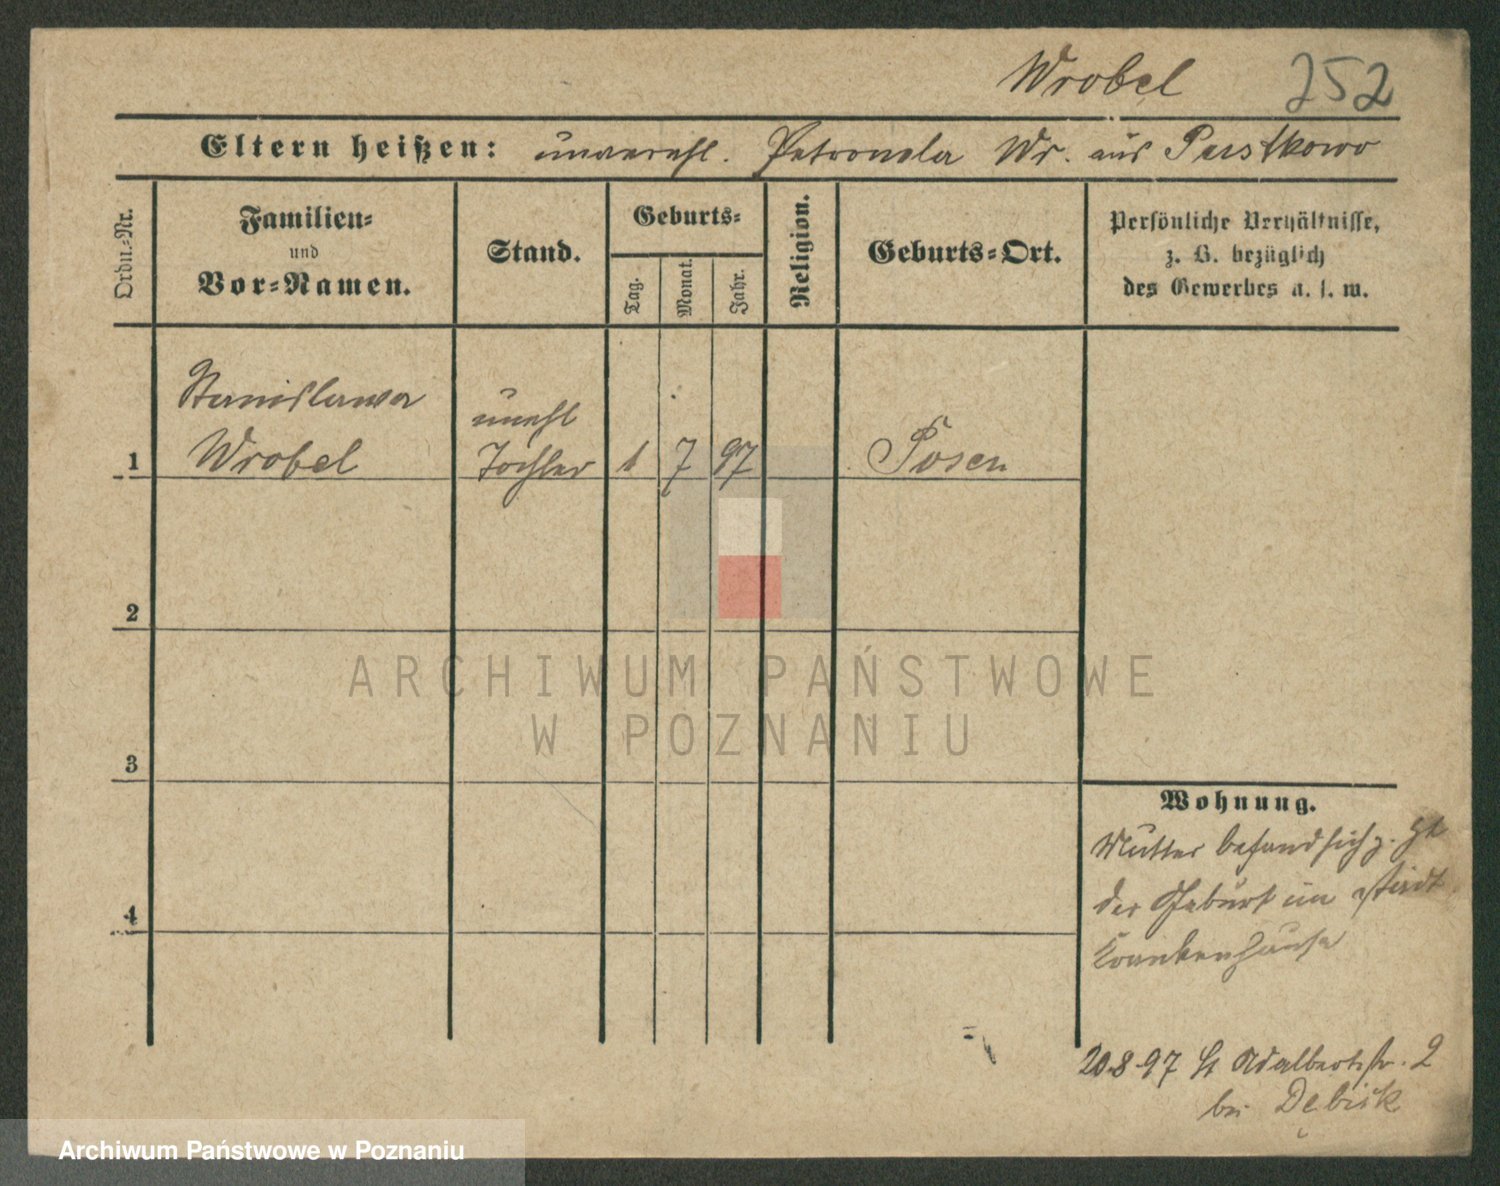 Wrobel 252
Eltern heißen: unverehl. Petronela Wr. aus Pustkowo
Ordn.-Nr.
Familien-
und
Vor-Namen.
Stand.
Geburts-
Tag.
Monat.
Jahr.
Religion.
Geburts-Ort.
Persönliche Verhältnisse,
z. B. bezüglich
des Gewerbes u. s. w.
Stanislawa
Wrobel
unehl
Tochter
1 1 7 97 Posen
2
3
4
Wohnung.
Mutter befand sich z. Zt
der Geburt im städt
Krankenhause
20.8.97 St Adalbertstr. 2
bei Dębisk
ARCHIWUM PAŃSTWOWE
W POZNANIU
Archiwum Państwowe w Poznaniu